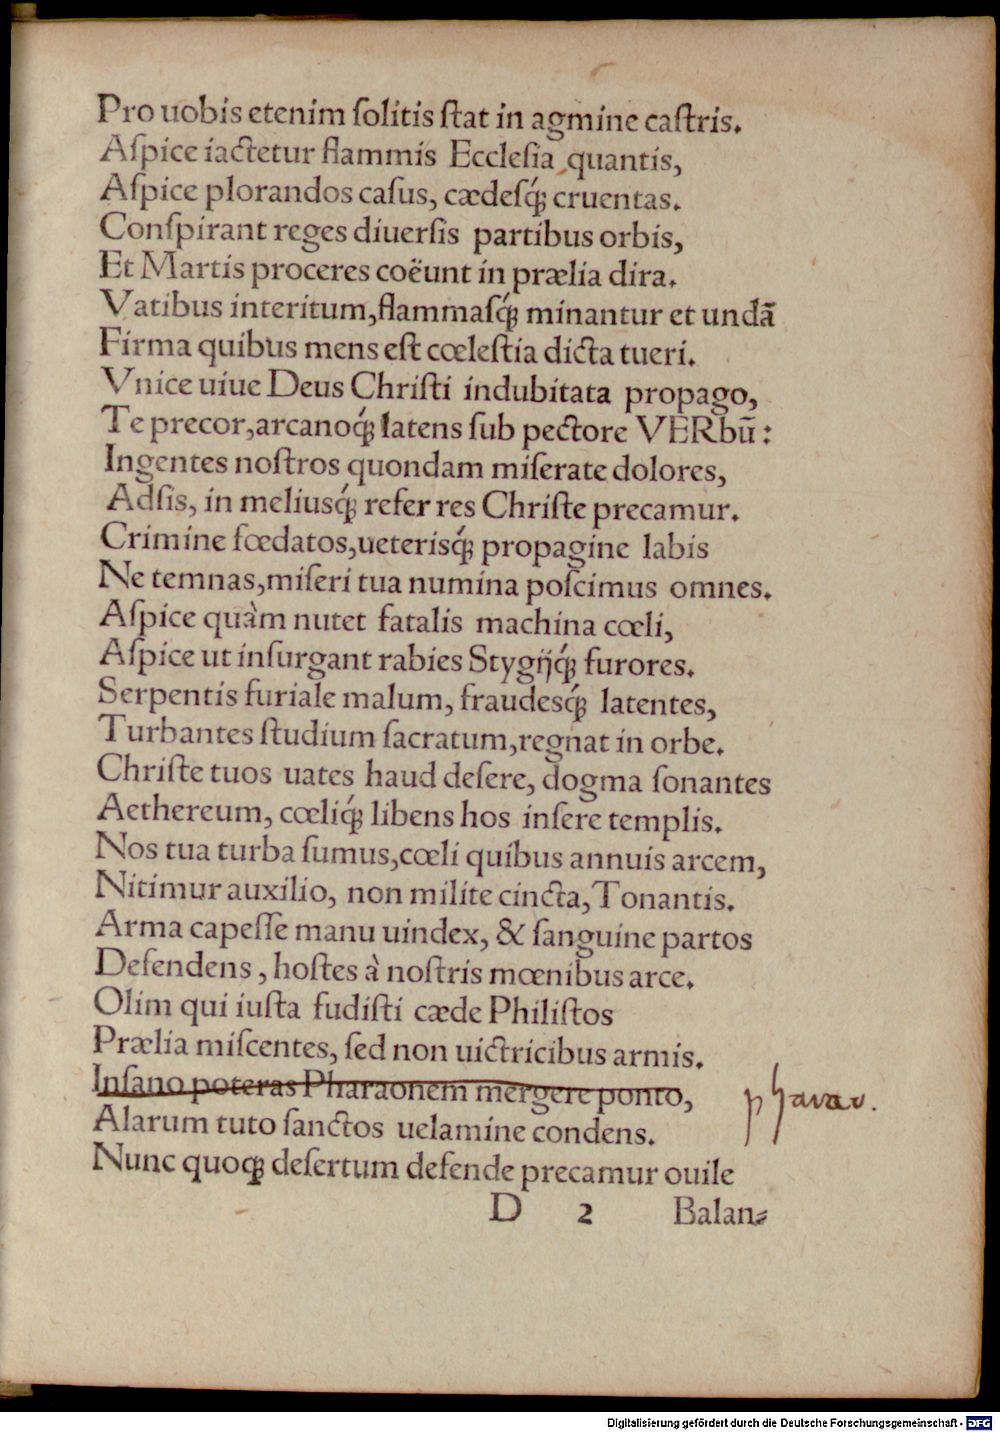 Pro uobis etenim ſolitis ſtat in agmine caſtris.
Aſpice iactetur flammis Eccleſia quantis,
Aſpice plorandos caſus, cædeſq́; cruentas.
Conſpirant reges diuerſis partibus orbis,
Et Martis proceres coëunt in prælia dira.
Vatibus interitum, flammaſq́; minantur et undā
Firma quibus mens eſt cœleſtia dicta tueri.
Vnice uiue Deus Chriſti indubitata propago,
Te precor, arcanoq́; latens ſub pectore VERbū:
Ingentes noſtros quondam miſerate dolores,
Adſis, in meliusq́; refer res Chriſte precamur.
Crimine fœdatos, ueterisq́; propagine labis
Ne temnas, miſeri tua numina poſcimus omnes.
Aſpice quàm nutet fatalis machina cœli,
Aſpice ut inſurgant rabies Stygijq́; furores.
Serpentis furiale malum, fraudesq́; latentes,
Turbantes ſtudium ſacratum, regnat in orbe.
Chriſte tuos uates haud deſere, dogma ſonantes
Aethereum, cœliq́; libens hos inſere templis.
Nos tua turba ſumus, cœli quibus annuis arcem,
Nitimur auxilio, non milite cincta, Tonantis.
Arma capeſſe manu uindex, & ſanguine partos
Defendens, hoſtes à noſtris mœnibus arce.
Olim qui iuſta fudiſti cæde Philiſtos
Prælia miſcentes, ſed non uictricibus armis.
Inſano poteras Pharaonem mergere ponto, pharao.
Alarum tuto ſanctos uelamine condens.
Nunc quoq; deſertum defende precamur ouile
D 2 Balan⸗
Digitalisierung gefördert durch die Deutsche Forschungsgemeinschaft - DFG